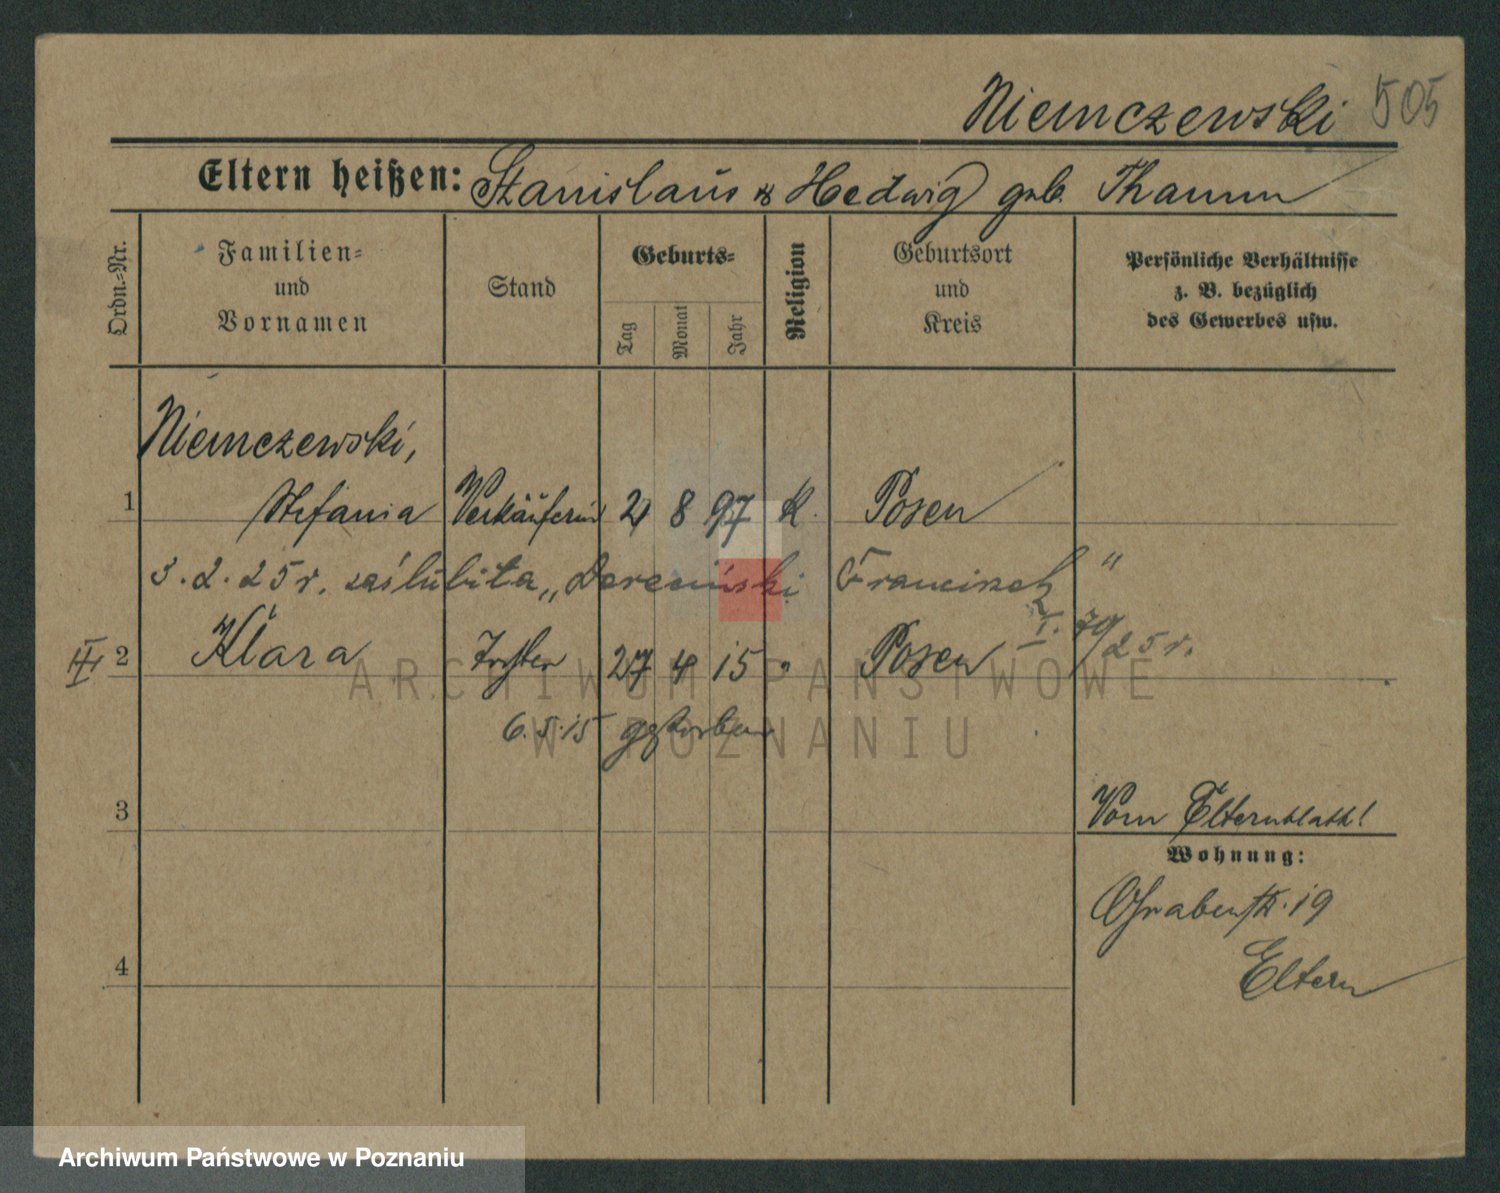 Niemczewski 505
Eltern heißen: Stanislaus & Hedwig geb. Thamm
Ordn.=Nr.
Familien=
und
Vornamen
Stand
Geburts=
Tag
Monat
Jahr
Religion
Geburtsort
und
Kreis
Persönliche Verhältnisse
z. B. bezüglich
des Gewerbes usw.
Niemczewski,
1 Stefania Verkäuferin 8 97 K. Posen
3. 2. 25 r. zaślubiła „ Franciszek "
I. 79/25 r.
III 2 Klara Tochter 27 4 15 " Posen
6. 5. 15 gestorben
3
Vom Elternblatt!
Wohnung:
Grabenstr. 19
4
Eltern
ARCHIWUM PAŃSTWOWE
W POZNANIU
Archiwum Państwowe w Poznaniu